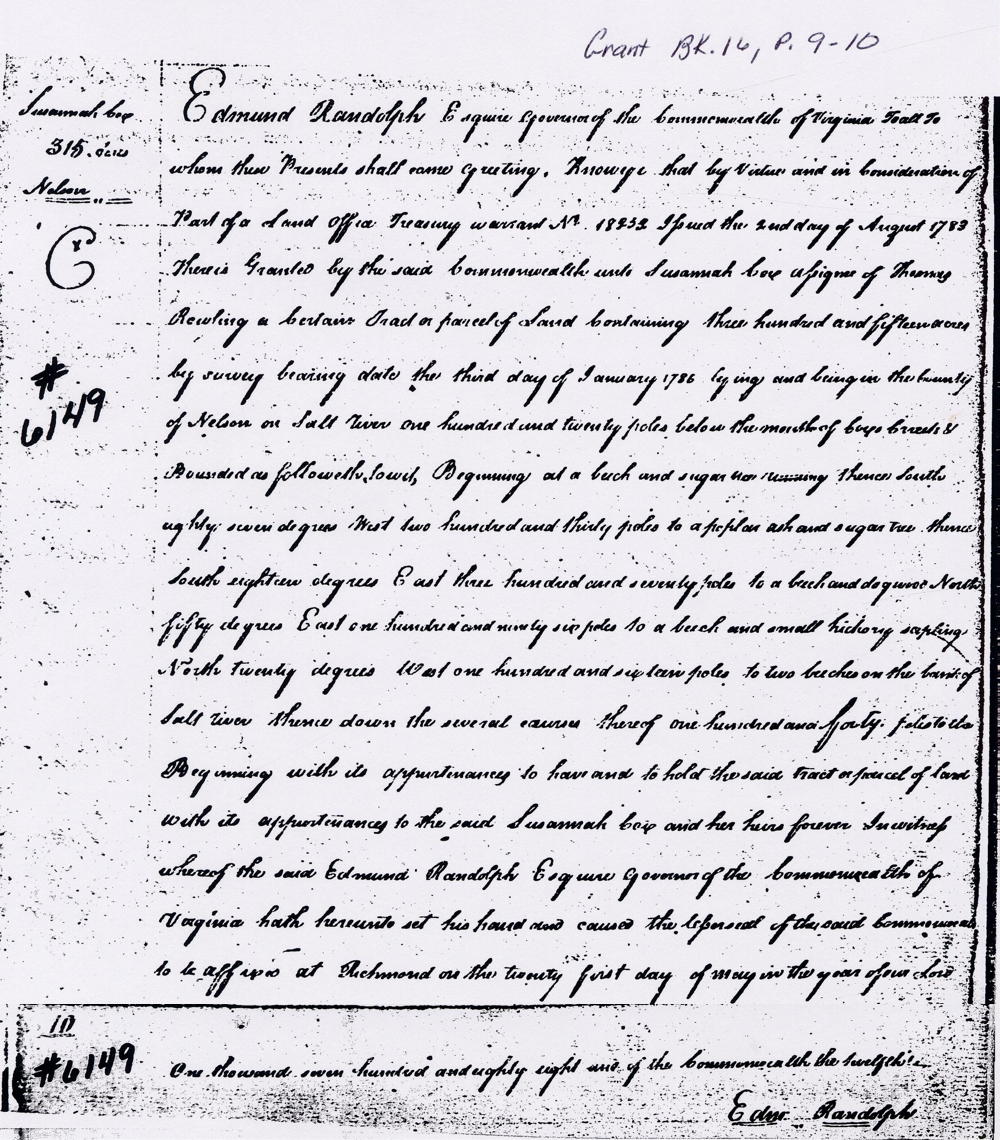 Grant BK. 16, P. 9-10
Susannah Cox
315. acres
Nelson
#
6149
Edmund Randolph Esquire Governor of the Commonwealth of Virginia To all To
whom these Presents shall come Greeting. Know ye that by Virtue and in Consideration of
Part of a Land Office Treasury warrant No. 18232 Issued the 2nd day of August 1783
There is Granted by the said Commonwealth unto Susannah Cox assignee of Thomas
Rowling a Certain Tract or parcel of Land Containing three hundred and fifteen acres
by survey bearing date the third day of January 1786 lying and being in the County
of Nelson on Salt River one hundred and twenty poles below the mouth of Coxes Creek &
Bounded as followeth, towit, Beginning at a beech and sugar tree running thence South
eighty seven degrees West two hundred and thirty poles to a poplar ash and sugar tree thence
South eighteen degrees East three hundred and seventy poles to a beech and dogwood North
fifty degrees East one hundred and ninety six poles to a beech and small hickory sapling
North twenty degrees West one hundred and sixteen poles to two beeches on the bank of
Salt river thence down the several courses thereof one hundred and forty poles to the
Beginning with its appurtinances to have and to hold the said tract or parcel of land
with its appurtinances to the said Susannah Cox and her heirs forever In witness
whereof the said Edmund Randolph Esquire Governor of the Commonwealth of
Virginia hath hereunto set his hand and caused the lesser seal of the said Commonwealth
to be affixed at Richmond on the twenty first day of may in the year of our Lord
10
#6149
One thousand seven hundred and eighty eight and of the Commonwealth the twelfth
Edm. Randolph